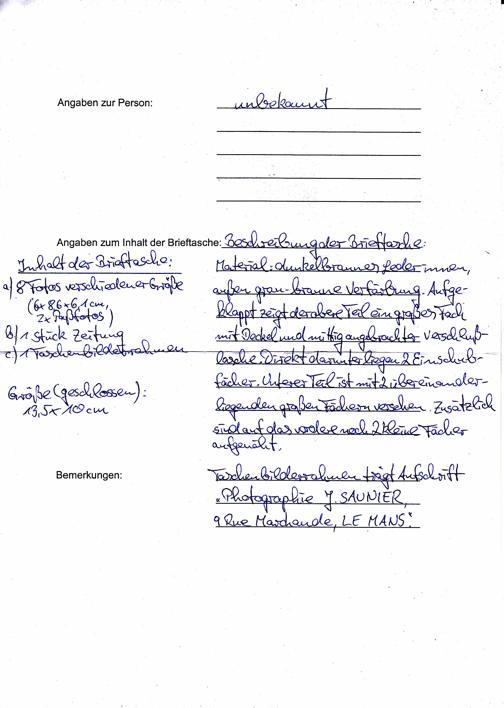 Angaben zur Person: unbekannt
Angaben zum Inhalt der Brieftasche: Beschreibung der Brieftasche:
Material: dunkelbraunes Leder innen,
außen grau-braune Verfärbung. Aufge-
klappt zeigt der obere Teil ein großes Fach
mit Deckel und mittig angebrachter Verschluß-
lasche. Direkt darunter liegen 2 Einschub-
fächer. Unterer Teil ist mit 2 übereinander-
liegenden großen Fächern versehen. Zusätzlich
sind auf das vordere noch 2 kleine Fächer
aufgenäht.
Inhalt der Brieftasche:
a) 8 Fotos verschiedener Größe
(6x 8,6x6,1 cm,
2x Paßfotos)
b) 1 Stück Zeitung
c) 1 Taschenbilderrahmen
Größe (geschlossen):
13,5x 10 cm
Bemerkungen: Taschenbilderrahmen trägt Aufschrift
„Photographie J. SAUNIER,
9 Rue Marchande, LE MANS."